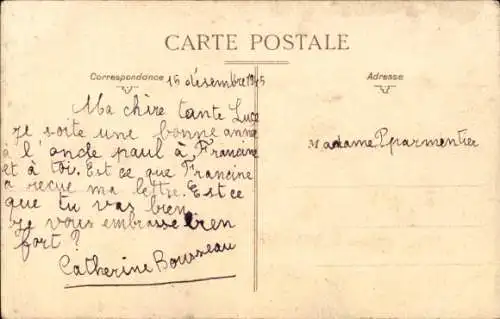 CARTE POSTALE
Correspondance
Adresse
15 désembre 1945
Ma chire tante Luce
je soite une bonne anne
à l'oncle paul à Francine
et à toi. Est ce que Francine
a reçue ma lettre. Est ce
que tu vas bien
je vous embrasse bien
fort ?
Catherine Rousseau
Madame Pparmentier